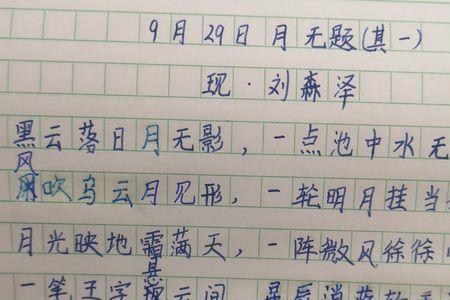 9月29日 月 无题(其一)
现·刘森泽
黑云落日月无影,一点池中水无
风吹乌云月见形,一轮明月挂当
月光映地霜满天,一阵微风徐徐
一笔王字 云间